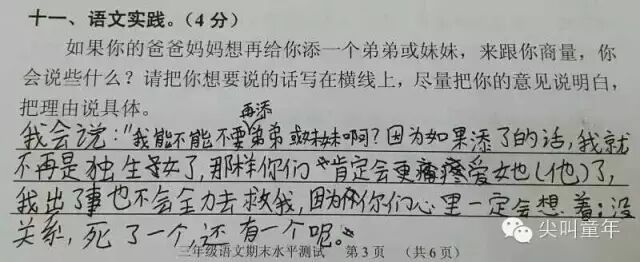 十一、语文实践。(4分)
如果你的爸爸妈妈想再给你添一个弟弟或妹妹，来跟你商量，你
会说些什么？请把你想要说的话写在横线上，尽量把你的意见说明白，
把理由说具体。
再添
我会说："我能不能不要弟弟或妹妹啊？因为如果添了的话，我就
不再是独生子女了，那样你们肯定会更疼爱她(他)了，
我出了事也不会全力去救我，因为你们心里一定会想着：没
关系，死了一个，还有一个呢。
三年级语文期末水平测试 第3页 (共6页)
尖叫童年